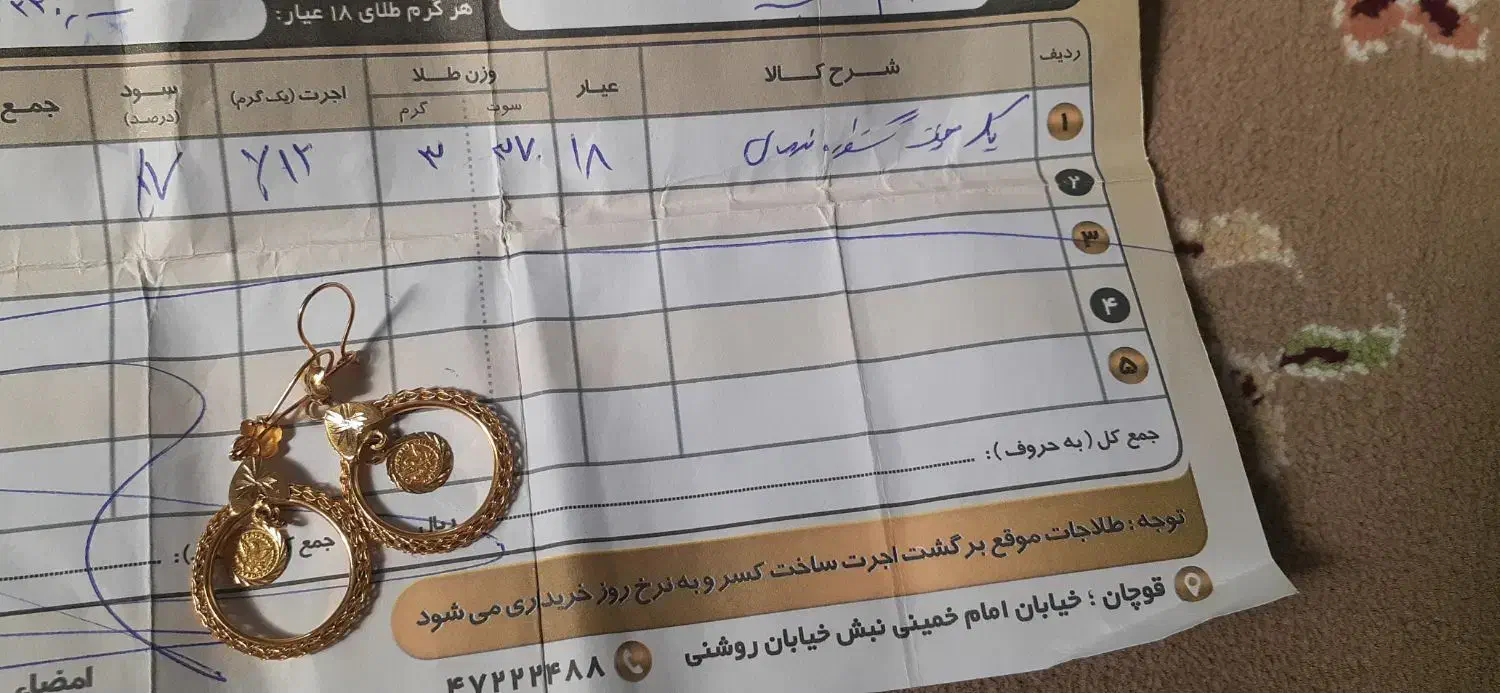 هر گرم طلای ۱۸ عیار:
ردیف شرح کالا عیار وزن طلا اجرت (یک گرم) سود (درصد) جمع
سوت گرم
۱ یک جفت گوشواره ۱۸ ۳۷۰ ۳ ٪۱۲ ٪۷
۲
۳
۴
۵
جمع کل (به حروف):
ریال
جمع
توجه: طلاجات موقع برگشت اجرت ساخت کسر و به نرخ روز خریداری می شود
قوچان ؛ خیابان امام خمینی نبش خیابان روشنی
۴۷۲۲۲۴۸۸
امضاء